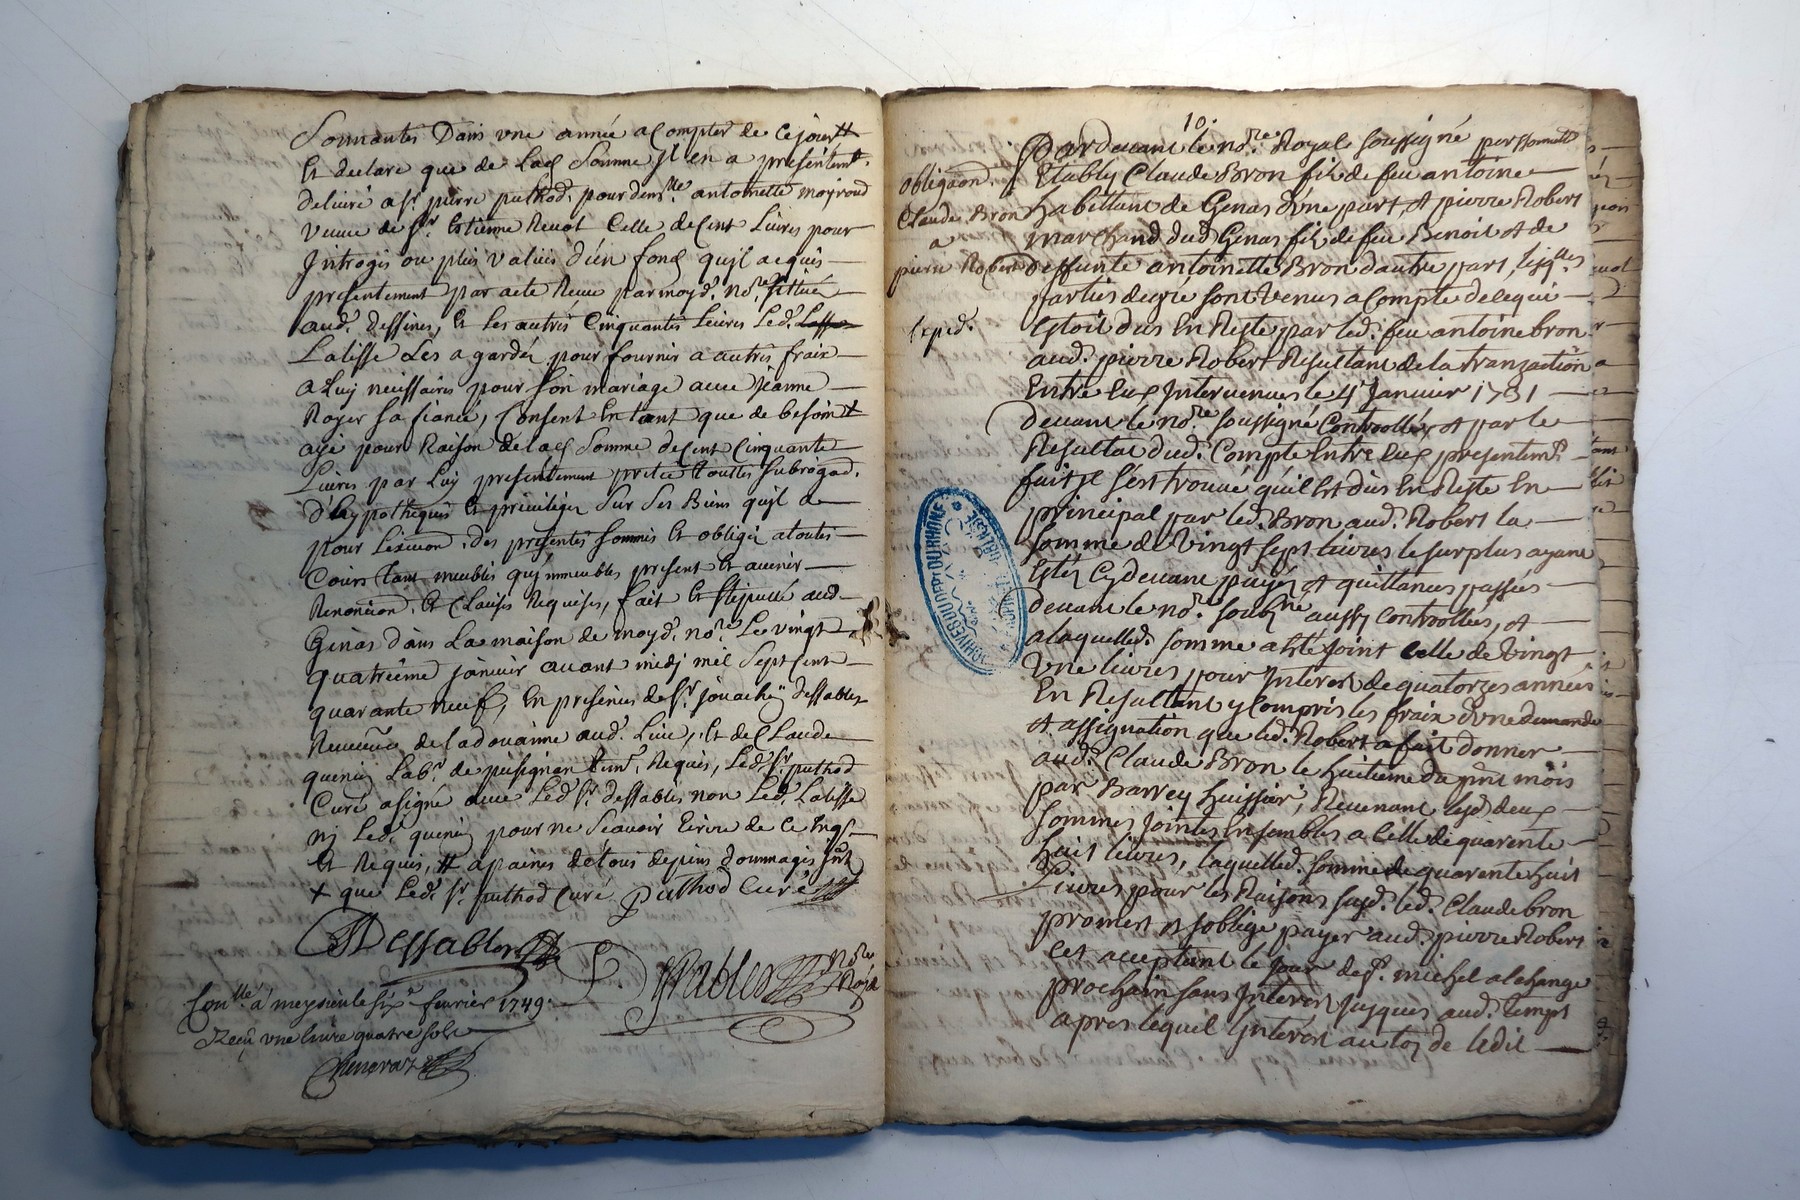 Sonnantes Dans une année a Compter de Cejour #
Et declare que de Lad Somme Jl en a presentemt.
deliuré a Sr. pierre puthod, pour demlle. antoinette mayroud
veuve de Sr. Estienne Revot Celle de Cent Liures pour
Introgis ou plus valües d'un fond quJl acquis
presentement par acte Receu par moyd. nore. scittué
aud. dessines, Et Les autres Cinquantes Liures Led.
Latisse Les a gardés pour fournir a autres fraix
a Luy necessaires pour son mariage auec Jeanne
Royer sa fiancé, Consent En tant que de besoin +
aye pour Raison de lad Somme de Cent Cinquante
Liures par Luy presentement pretée touttes subrogaõ.
d'hypotheques Et privilèges Sur Ses Biens qu'Jl a
pour L'execuon. des presentes soumis Et obligés a toutes
Cours tant meubles qu'immeubles present Et auenir
Renonciaon. Et Clauses Requises, fait Et stipullé aud.
Genas dans La maison de moyd. nore. Le vingt
quatriême januier auant midj mil Sept Cent
quarante neuf, En presences de Sr. joüachin dessables
Receueur de la doüanne aud. Lieu, Et de Claude
quenin Labr. de pusignan tem. Requis, Led. Sr. puthod
Curé a signé auec Led Sr. dessables non Led. Latisse
nj Led. quenin pour ne Scauoir Ecrire de Ce Enqs
Et Requis, # a paines de tous depens dommages Jnts
+ que Led. Sr. puthod Curé puthod Curé
Dessables
Dessables nore
Royal
Conllé a meysieu le six feurier 1749.
Reçu vne liure quatre sols
Cheneraz
10.
Pardeuant le nore. Royal soussigné personnelt
Obligaon.
Etably Claude Bron fils de feu antoine
Claude Bron
habittant de Genas d'une part et pierre Robert
a
marchand dud Genas fils de feu Benoit et de
pierre Robert
deffunte antoinette Bron dautre part, lesqlles
parties de gré sont Venus a Compte de ce qui
Exped.
Estoit dus En Reste par led. feu antoine bron
aud. pierre Robert Resultant de la tranzaction
Entre Eux Interuenues le 4 Januier 1731
deuant le nore. soussigné Controllée, et par le
Resultat dud. Compte Entre Eux presentemt.
fait Jl s'est trouué qu'il Est dus En Reste En
principal par led. Bron aud. Robert la
somme de Vingt sept liures le surplus ayant
Estés Cy deuant payés et quittances passées
deuant le nore. soubzne aussy Controllées, et
a laquelled. somme a Eté Joint Celle de Vingt
Vne liures pour Interest de quatorzes années
En Resultant y Compris les fraix d'une demande
et assignation que led. Robert a fait donner
aud. Claude Bron le huitieme du pnt mois
par Barrey huissier, Reuenant lesd deux
sommes jointes Ensembles a Celle de quarente
huit liures, laquelled. somme de quarente huit
Liures pour les Raisons susd. led. Claude bron
promet et soblige payer aud. pierre Robert
Cet acceptant le Jour de St. michel a lchange
prochain sans Interest jusques aud. temps
apres lequel Interest au taux de ledit
ARCHIVES DU DEPT DU RHONE